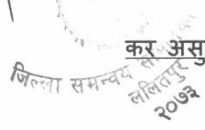 कर असु
जिल्ला समन्वय
ललितपुर
२०७३